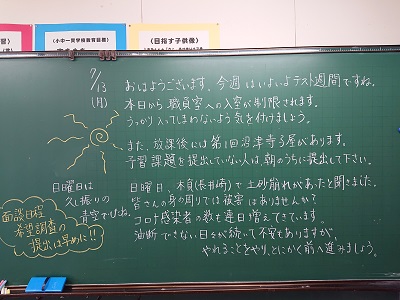 (小中一貫学級教育目標)
(目指す子供像)
7/13
(月)
おはようございます。今週はいよいよテスト週間ですね。
本日から職員室への入室が制限されます。
うっかり入ってしまわないよう気を付けましょう。
また、放課後には第1回沼津寺子屋があります。
予習課題を提出していない人は、朝のうちに提出して下さい。
日曜日は
久し振りの
青空でしたね。
日曜日、本真(長井崎)で土砂崩れがあったと聞きました。
皆さんの身の周りでは被害はありませんか?
コロナ感染者の数も連日増えてきています。
油断できない日々が続いて不安もありますが、
やれることをやり、とにかく前へ進みましょう。
面談日程
希望調査の
提出は早めに!!